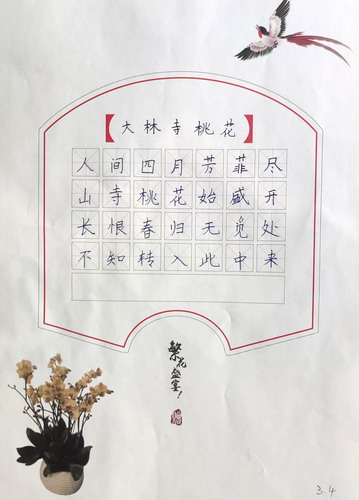 【大林寺桃花】
人间四月芳菲尽
山寺桃花始盛开
长恨春归无觅处
不知转入此中来
繁花盛宴！
3.4